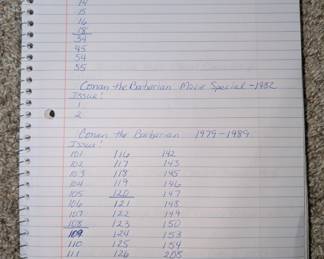 14
15
16
18
34
45
54
55
Conan the Barbarian Movie Special - 1982
Issue:
1
2
Conan the Barbarian 1979-1989
Issue:
101 116 142
102 117 143
103 118 145
104 119 146
105 120 147
106 121 148
107 122 149
108 123 150
109 124 153
110 125 154
111 126 205